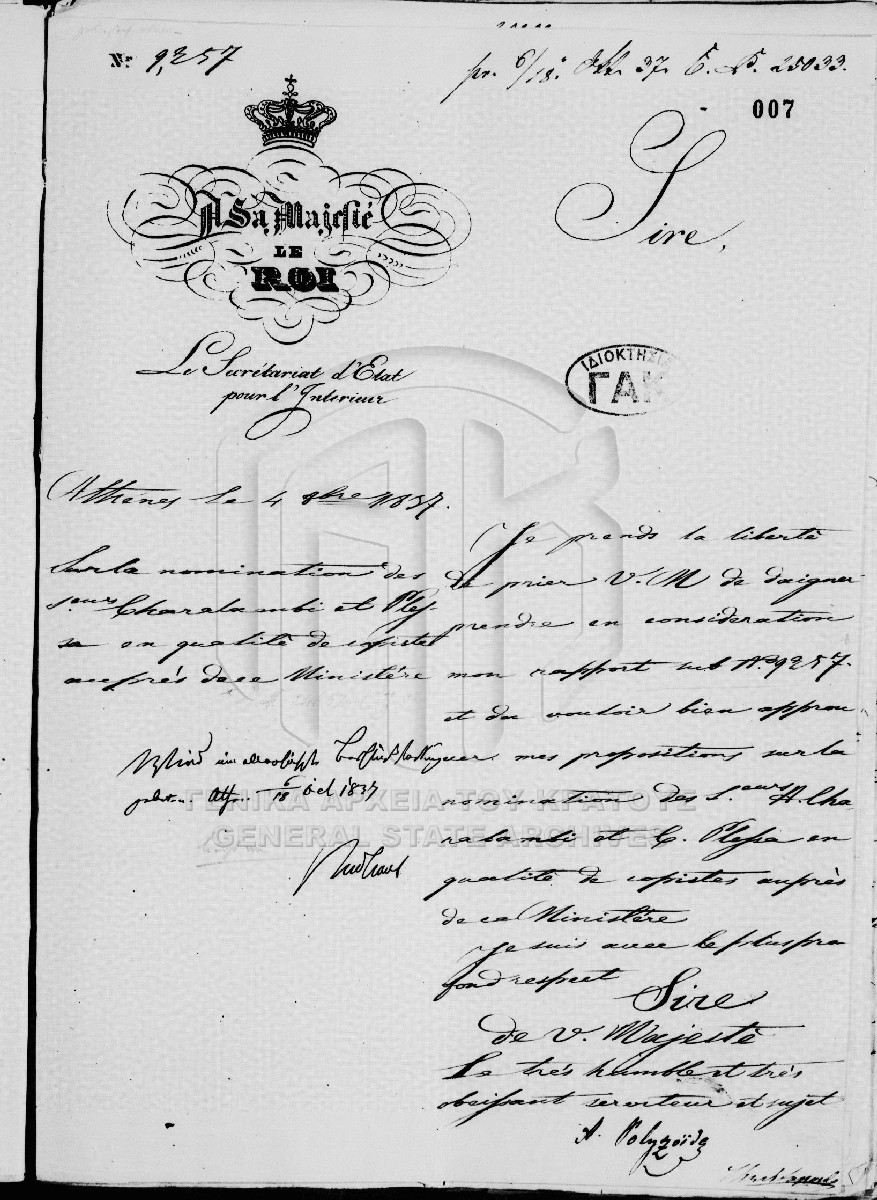 Nr. 9,257
pr. 6/18. Okt. 37. E. N. 25033.
007
Sire,
A Sa Majesté
LE
ROI
Le Secrétariat d'Etat
pour l'Interieur
ΙΔΙΟΚΤΗΣΙΑ
ΓΑΚ
Athènes le 4 8bre 1837.
Sur la nomination des
Seurs Charalambi et Ples-
sa en qualité de copistes
auprès de ce Ministère
6/18 Oct 1837
Je prends la liberté
de prier V. M de daigner
prendre en consideration
mon rapport sub No. 9257.
et du vouloir bien approu
ver mes propositions sur la
nomination des Seurs A. Cha
ralambi et C. Plessa en
qualité de copistes auprès
de ce Ministère
Je suis avec le plus pro
fond respect
Sire
de V. Majesté
Le très humble et très
obeissant serviteur et sujet
A. Polyzoïdes
ΓΕΝΙΚΑ ΑΡΧΕΙΑ ΤΟΥ ΚΡΑΤΟΥΣ
GENERAL STATE ARCHIVES